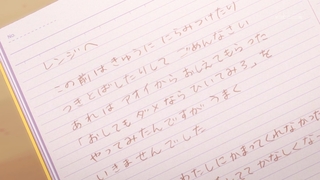 レンジへ
この前はきゅうに にらみつけたり
つきとばしたりして ごめんなさい
あれは アオイからおしえてもらった
「おしてもダメならひいてみろ」を
やってみたんですが うまく
いきませんでした
わたしにかまってくれなかった